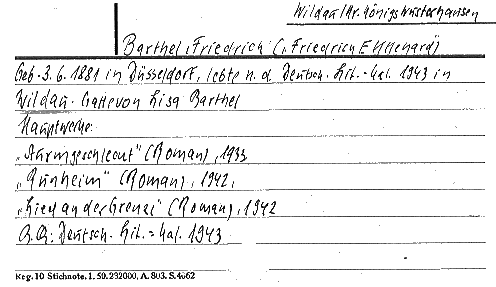 Wildau/Kr. Königswusterhausen
Barthel, Friedrich (, Friedrich Ekkehard")
Geb. 3. 6. 1881 in Düsseldorf, lebte n. d. Deutsch. Lit.-Kal. 1943 in
Wildau. Gatte von Lisa Barthel
Hauptwerke:
(Roman), 1933
(Roman), 1942,
an der Grenze" (Roman), 1942
Deutsch. Lit.-Kal. 1943
Reg. 10 Stichnote. 1. 50. 232000, A. 803. S. 4662